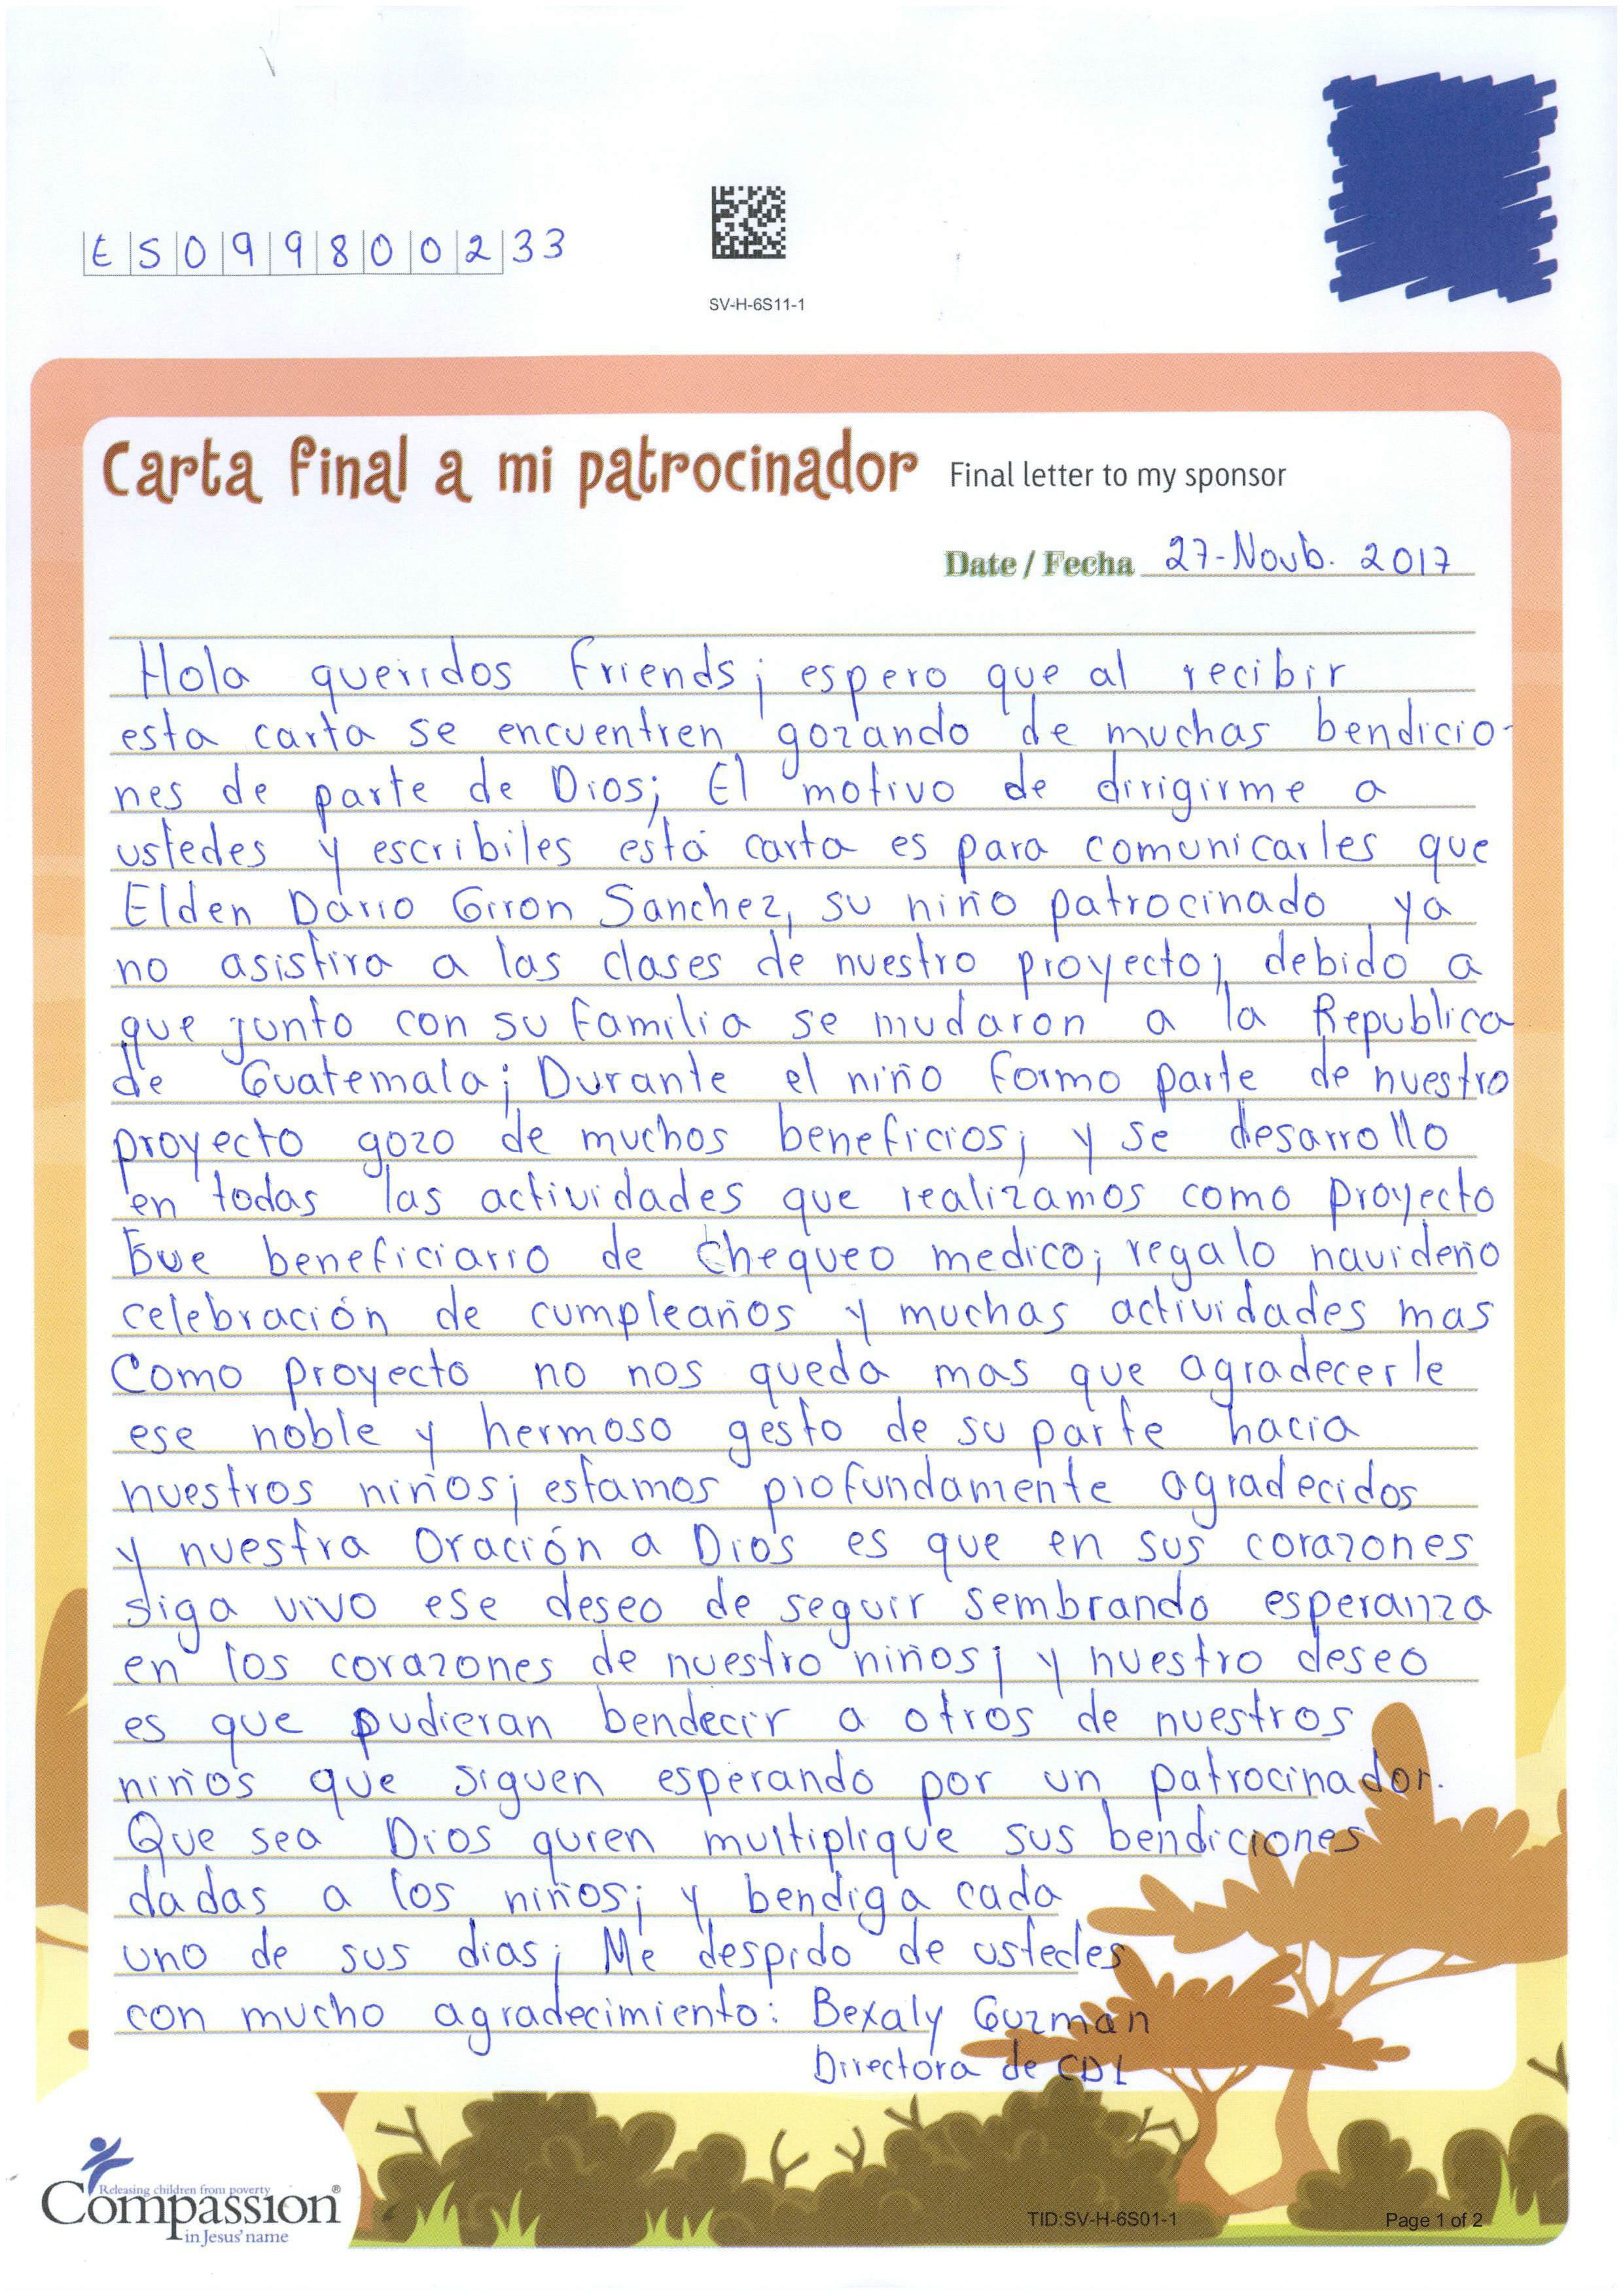 ES09980０233
SV-H-6S11-1
Carta final a mi patrocinador Final letter to my sponsor
Date / Fecha 27-Novb. 2017
Hola queridos Friends; espero que al recibir
esta carta se encuentren gozando de muchas bendicio-
nes de parte de Dios; El motivo de dirigirme a
ustedes y escribiles está carta es para comunicarles que
Elden Dario Giron Sanchez, su niño patrocinado ya
no asistira a las clases de nuestro proyecto; debido a
que junto con su familia se mudaron a la Republica
de Guatemala; Durante el niño formo parte de nuestro
proyecto gozo de muchos beneficios; y se desarrollo
en todas las actividades que realizamos como proyecto
Fue beneficiario de chequeo medico; regalo navideño
celebración de cumpleaños y muchas actividades mas
Como proyecto no nos queda mas que agradecerle
ese noble y hermoso gesto de su parte hacia
nuestros niños; estamos profundamente agradecidos
y nuestra Oración a Dios es que en sus corazones
siga vivo ese deseo de seguir sembrando esperanza
en los corazones de nuestro niños; y nuestro deseo
es que pudieran bendecir a otros de nuestros
niños que siguen esperando por un patrocinador.
Que sea Dios quien multiplique sus bendiciones
dadas a los niños; y bendiga cada
uno de sus dias; Me despido de ustedes
con mucho agradecimiento: Bexaly Guzman
Directora de CDI
Releasing children from poverty
Compassion®
in Jesus' name
TID:SV-H-6S01-1
Page 1 of 2